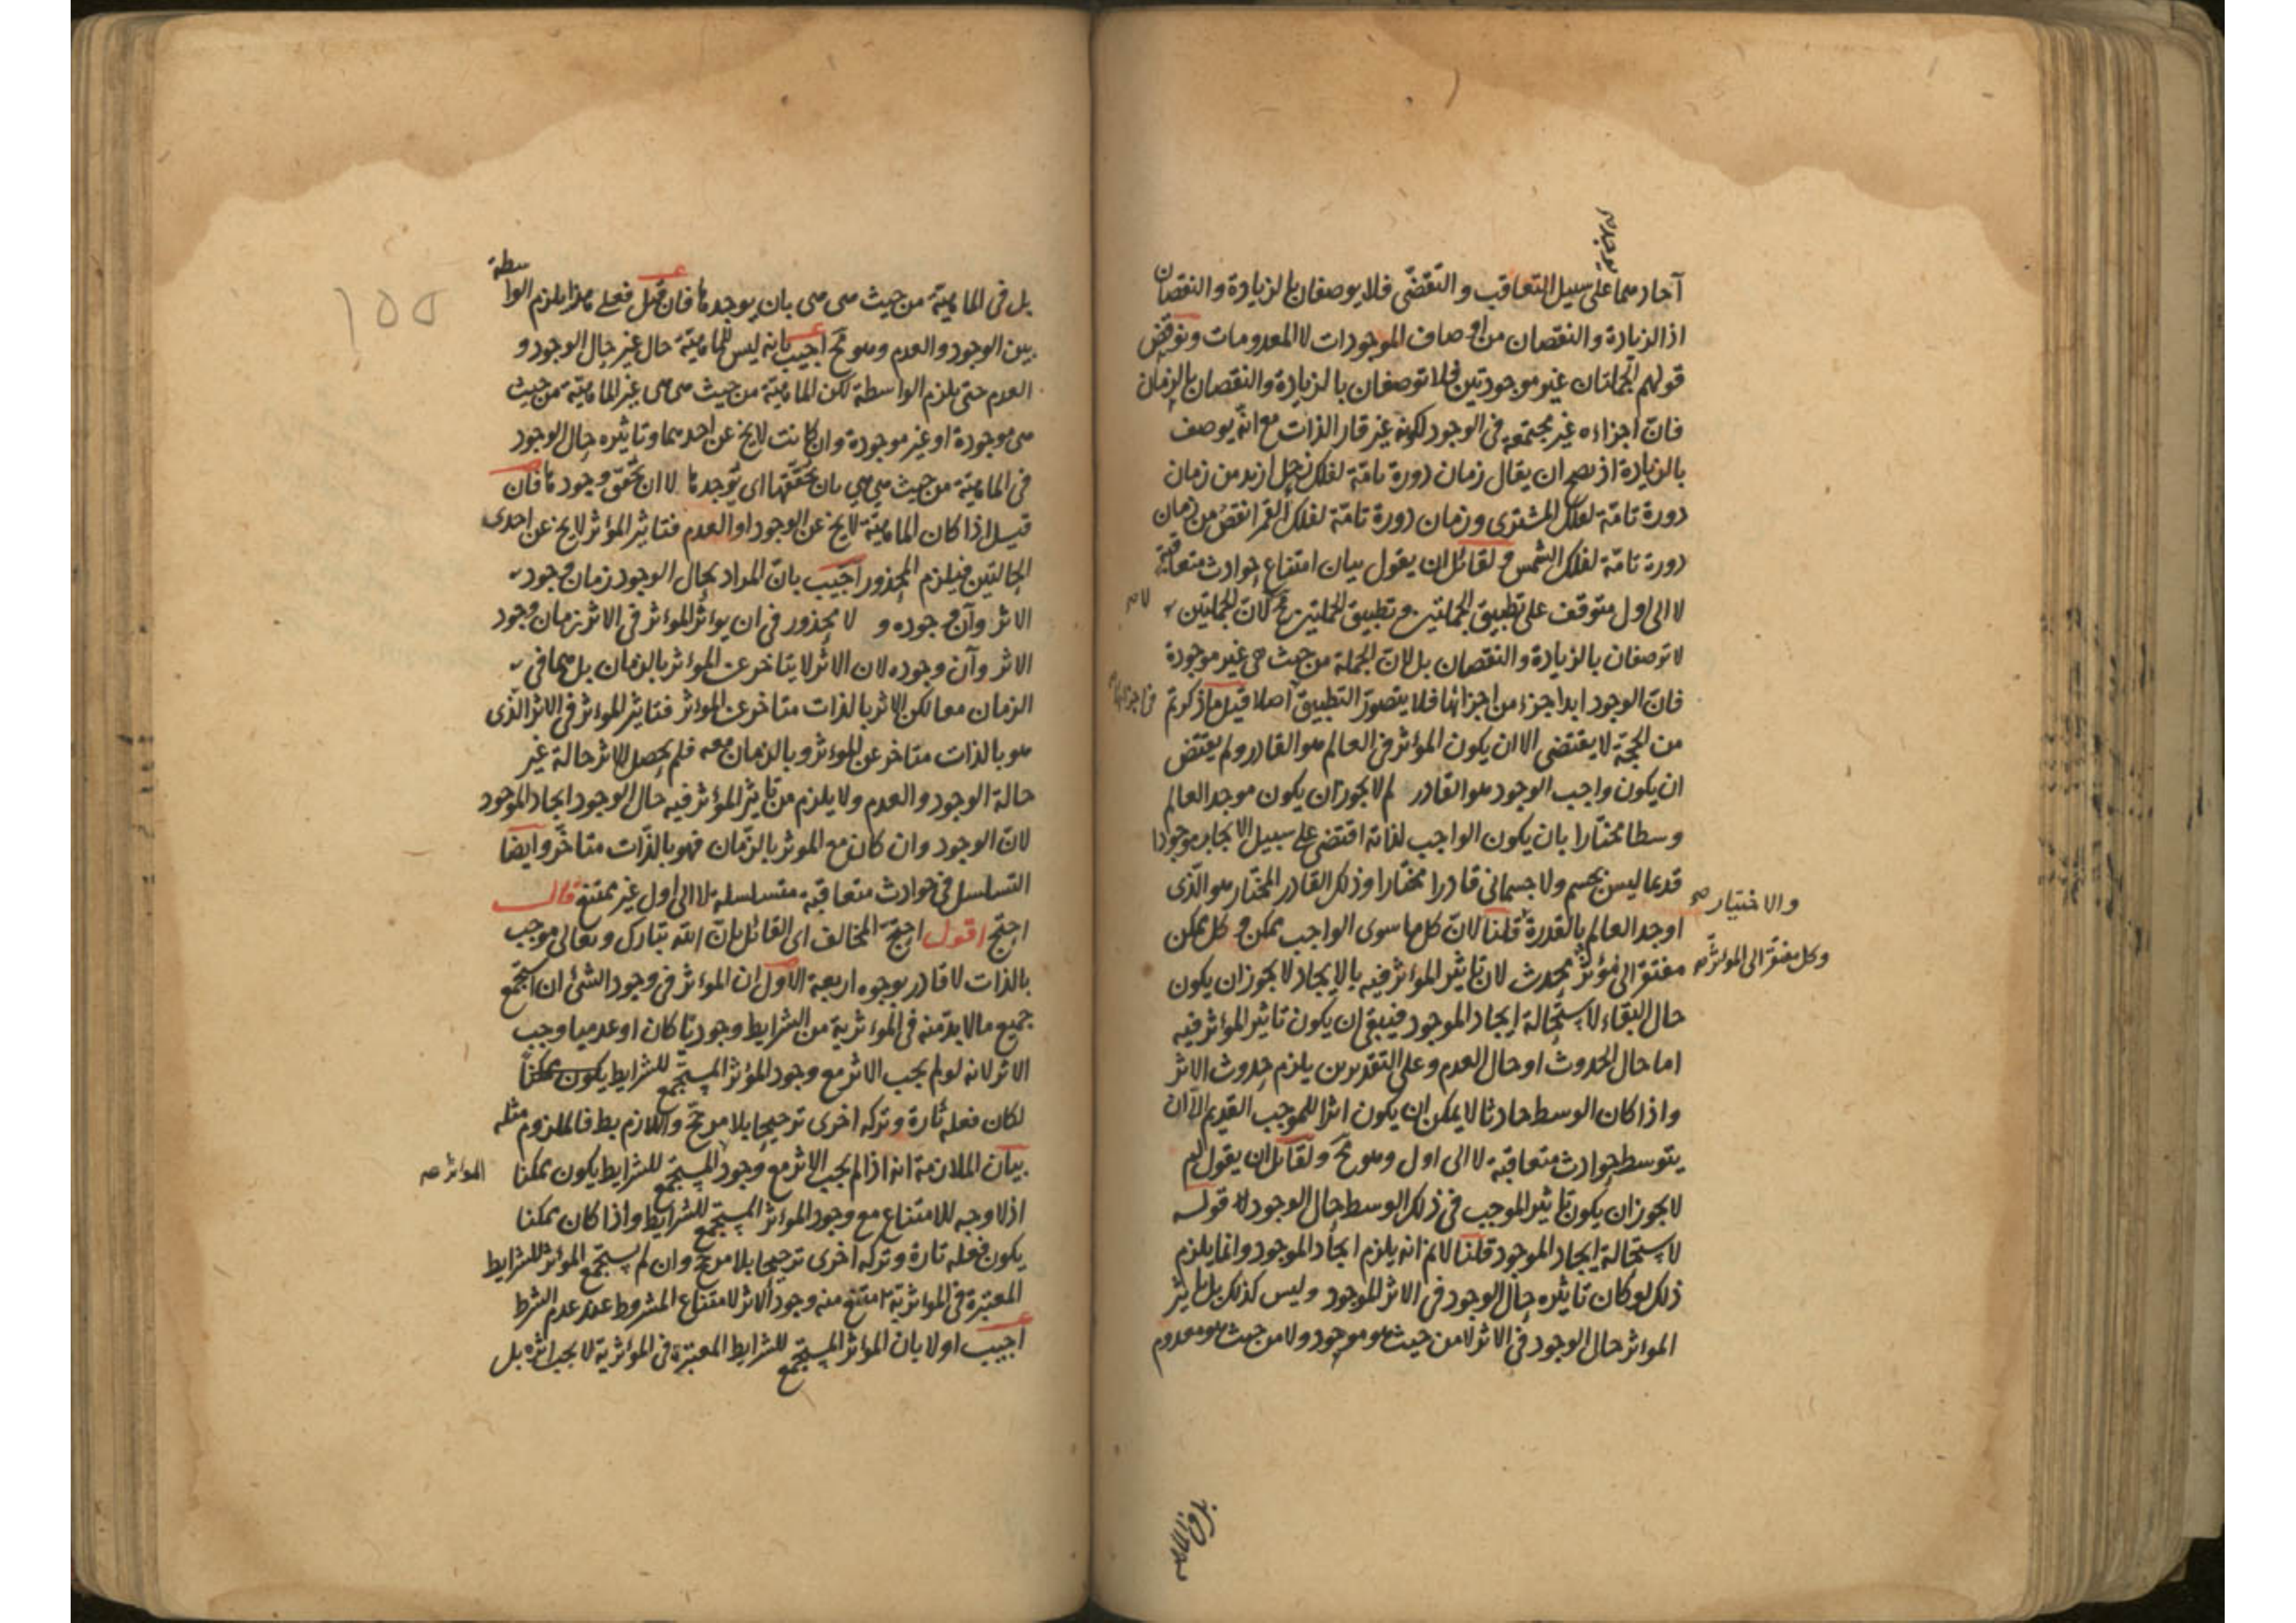 آحادهما على سبيل التعاقب والتقضّى فلا يوصفان بالزيادة والنقصان
اذ الزيادة والنقصان من اوصاف الموجودات لا المعدومات ونوقض
قولهم الجملتان غير موجودتين فلا توصفان بالزيادة والنقصان بالزمان
فانّ اجزاءه غير مجتمعة فى الوجود لكونه غير قار الذات مع انّه يوصف
بالزيادة اذ يصح ان يقال زمان دورة تامّة لفلك زحل ازيد من زمان
دورة تامّة لفلك المشترى وزمان دورة تامّة لفلك القمر انقص من زمان
دورة تامّة لفلك الشمس ولقائل ان يقول بيان امتناع حوادث متعاقبة
لا الى اول متوقف على تطبيق الجملتين وتطبيق الجملتين مح لانّ الجملتين
لا توصفان بالزيادة والنقصان بل لانّ الجملة من حيث هى غير موجودة
فانّ الوجود ابدا جزء من اجزائها فلا يتصوّر التطبيق اصلا قيل ما ذكرتم
من الحجّة لا يقتضى الا ان يكون المؤثر فى العالم هو القادر ولم يقتض
ان يكون واجب الوجود هو القادر لم لا يجوز ان يكون موجد العالم
وسطا مختارا بان يكون الواجب لذاته اقتضى على سبيل الايجاب موجودا
قديما ليس بجسم ولا جسمانى قادرا مختارا وذلك القادر المختار هو الّذى
والاختيار صح
اوجد العالم بالقدرة قلنا لانّ كل ما سوى الواجب ممكن وكل ممكن
وكل مفتقر الى المؤثر صح
مفتقر الى مؤثر محدث لان تاثير المؤثر فيه بالايجاد لا يجوز ان يكون
حال البقاء لاستحالة ايجاد الموجود فيبقى ان يكون تاثير المؤثر فيه
اما حال الحدوث او حال العدم وعلى التقديرين يلزم حدوث الاثر
واذا كان الوسط حادثا لا يمكن ان يكون اثرا للموجب القديم الا ان
يتوسط حوادث متعاقبة لا الى اول وهو مح ولقائل ان يقول لم
لا يجوز ان يكون تاثير الموجب فى ذلك الوسط حال الوجود قوله
لاستحالة ايجاد الموجود قلنا لا نم انه يلزم ايجاد الموجود وانما يلزم
ذلك لو كان تاثيره حال الوجود فى الاثر الموجود وليس كذلك بل تاثير
المؤثر حال الوجود فى الاثر لا من حيث هو موجود ولا من حيث هو معدوم
بل فى الماهيّة من حيث هى هى بان يوجدها فان قيل فعلى هذا يلزم الواسطة
بين الوجود والعدم وهو مح اجيب بانه ليس للماهيّة حال غير حال الوجود و
العدم حتى يلزم الواسطة لكن الماهيّة من حيث هى هى غير الماهيّة من حيث
هى موجودة او غير موجودة وان كانت لا يخ عن احدهما وتاثيره حال الوجود
فى الماهيّة من حيث هى هى بان يحققها اى يوجدها لا ان يحقق وجودها فان
قيل اذا كان الماهيّة لا يخ عن الوجود او العدم فتاثير المؤثر لا يخ عن احدى
الحالتين فيلزم المحذور اجيب بانّ المراد بحال الوجود زمان وجود
الاثر وآن وجوده ولا محذور فى ان يؤثر المؤثر فى الاثر زمان وجود
الاثر وآن وجوده لان الاثر لا يتاخر عن المؤثر بالزمان بل هما فى
الزمان معا لكن الاثر بالذات متاخر عن المؤثر فتاثير المؤثر فى الاثر الذى
هو بالذات متاخر عن المؤثر وبالزمان معه فلم يحصل للاثر حالة غير
حالة الوجود والعدم ولا يلزم من تاثير المؤثر فيه حال الوجود ايجاد الموجود
لانّ الوجود وان كان مع المؤثر بالزّمان فهو بالذّات متاخّر وايضا
التسلسل فى حوادث متعاقبة متسلسلة لا الى اول غير ممتنع قال
احتج اقول احتجّ المخالف اى القائل بانّ اللّه تبارك وتعالى موجب
بالذات لا قادر بوجوه اربعة الاول ان المؤثر فى وجود الشئ ان استجمع
جميع ما لا بدّ منه فى المؤثرية من الشرايط وجوديّا كان او عدميا وجب
الاثر لانه لو لم يجب الاثر مع وجود المؤثر المستجمع للشرايط يكون ممكنا
لكان فعله تارة وتركه اخرى ترجيحا بلا مرجّح واللازم بط فالملزوم مثله
بيان الملازمة انه اذا لم يجب الاثر مع وجود المستجمع للشرايط يكون ممكنا
المؤثر صح
اذ لا وجه للامتناع مع وجود المؤثر المستجمع للشرايط واذا كان ممكنا
يكون فعله تارة وتركه اخرى ترجيحا بلا مرجح وان لم يستجمع المؤثر للشرايط
المعتبرة فى المؤثرية امتنع منه وجود الاثر لامتناع المشروط عند عدم الشرط
اجيب اولا بان المؤثر المستجمع للشرايط المعتبرة فى المؤثرية لا يجب اثره بل